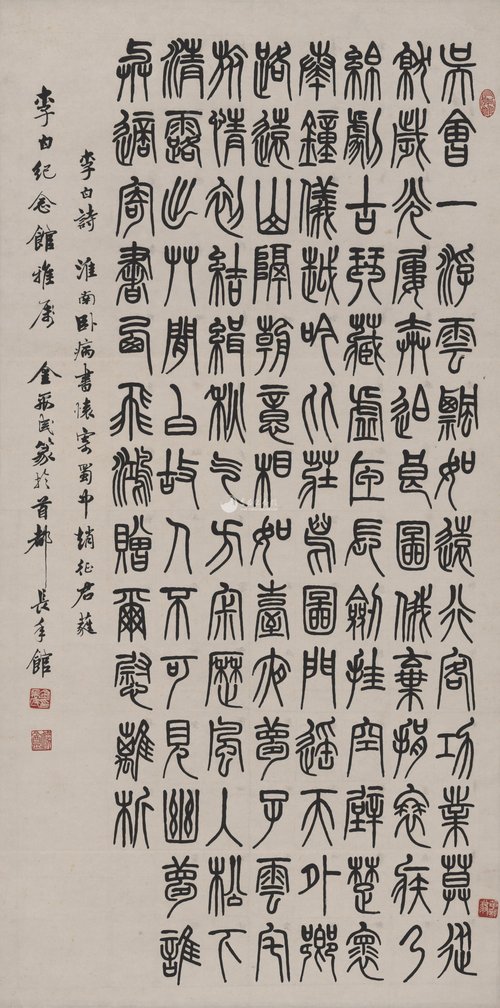 吳會一浮雲飄如遠行客功業莫從
就歲光屢奔迫良圖俄棄捐衰疾乃
綿劇古琴藏虛匣長劍挂空壁楚懷
奏鐘儀越吟比莊舄國門遙天外鄉
路遠山隔朝憶相如臺夜夢子雲宅
旅情初結緝秋氣方寂歷風入松下
清露出草間白故人不可見幽夢誰
與適寄書西飛鴻贈爾慰離析
李白詩 淮南卧病書懷寄蜀中趙征君蕤
李白紀念館雅屬 金禹民篆於首都長年館